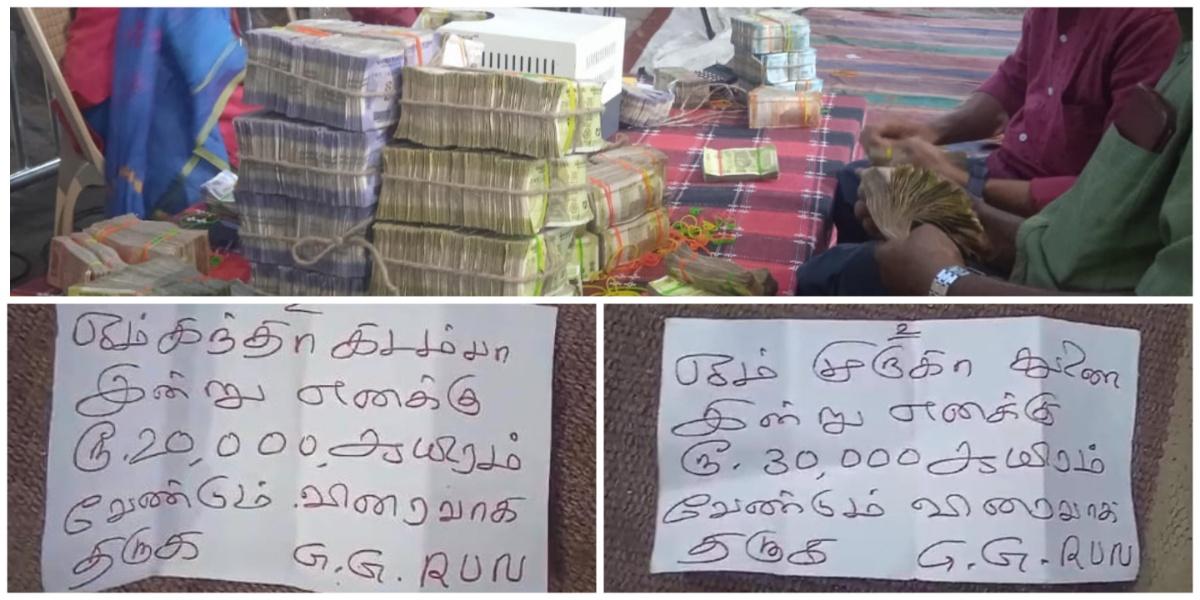 உ
ஓம் கந்தா கடம்பா
இன்று எனக்கு
ரூ.20,000, ஆயிரம்
வேண்டும் விரைவாக
தருக G.G. RUN
உ
ஓம் முருகா துணை
இன்று எனக்கு
ரூ. 30,000 ஆயிரம்
வேண்டும் விரைவாக
தருக G.G. RUN